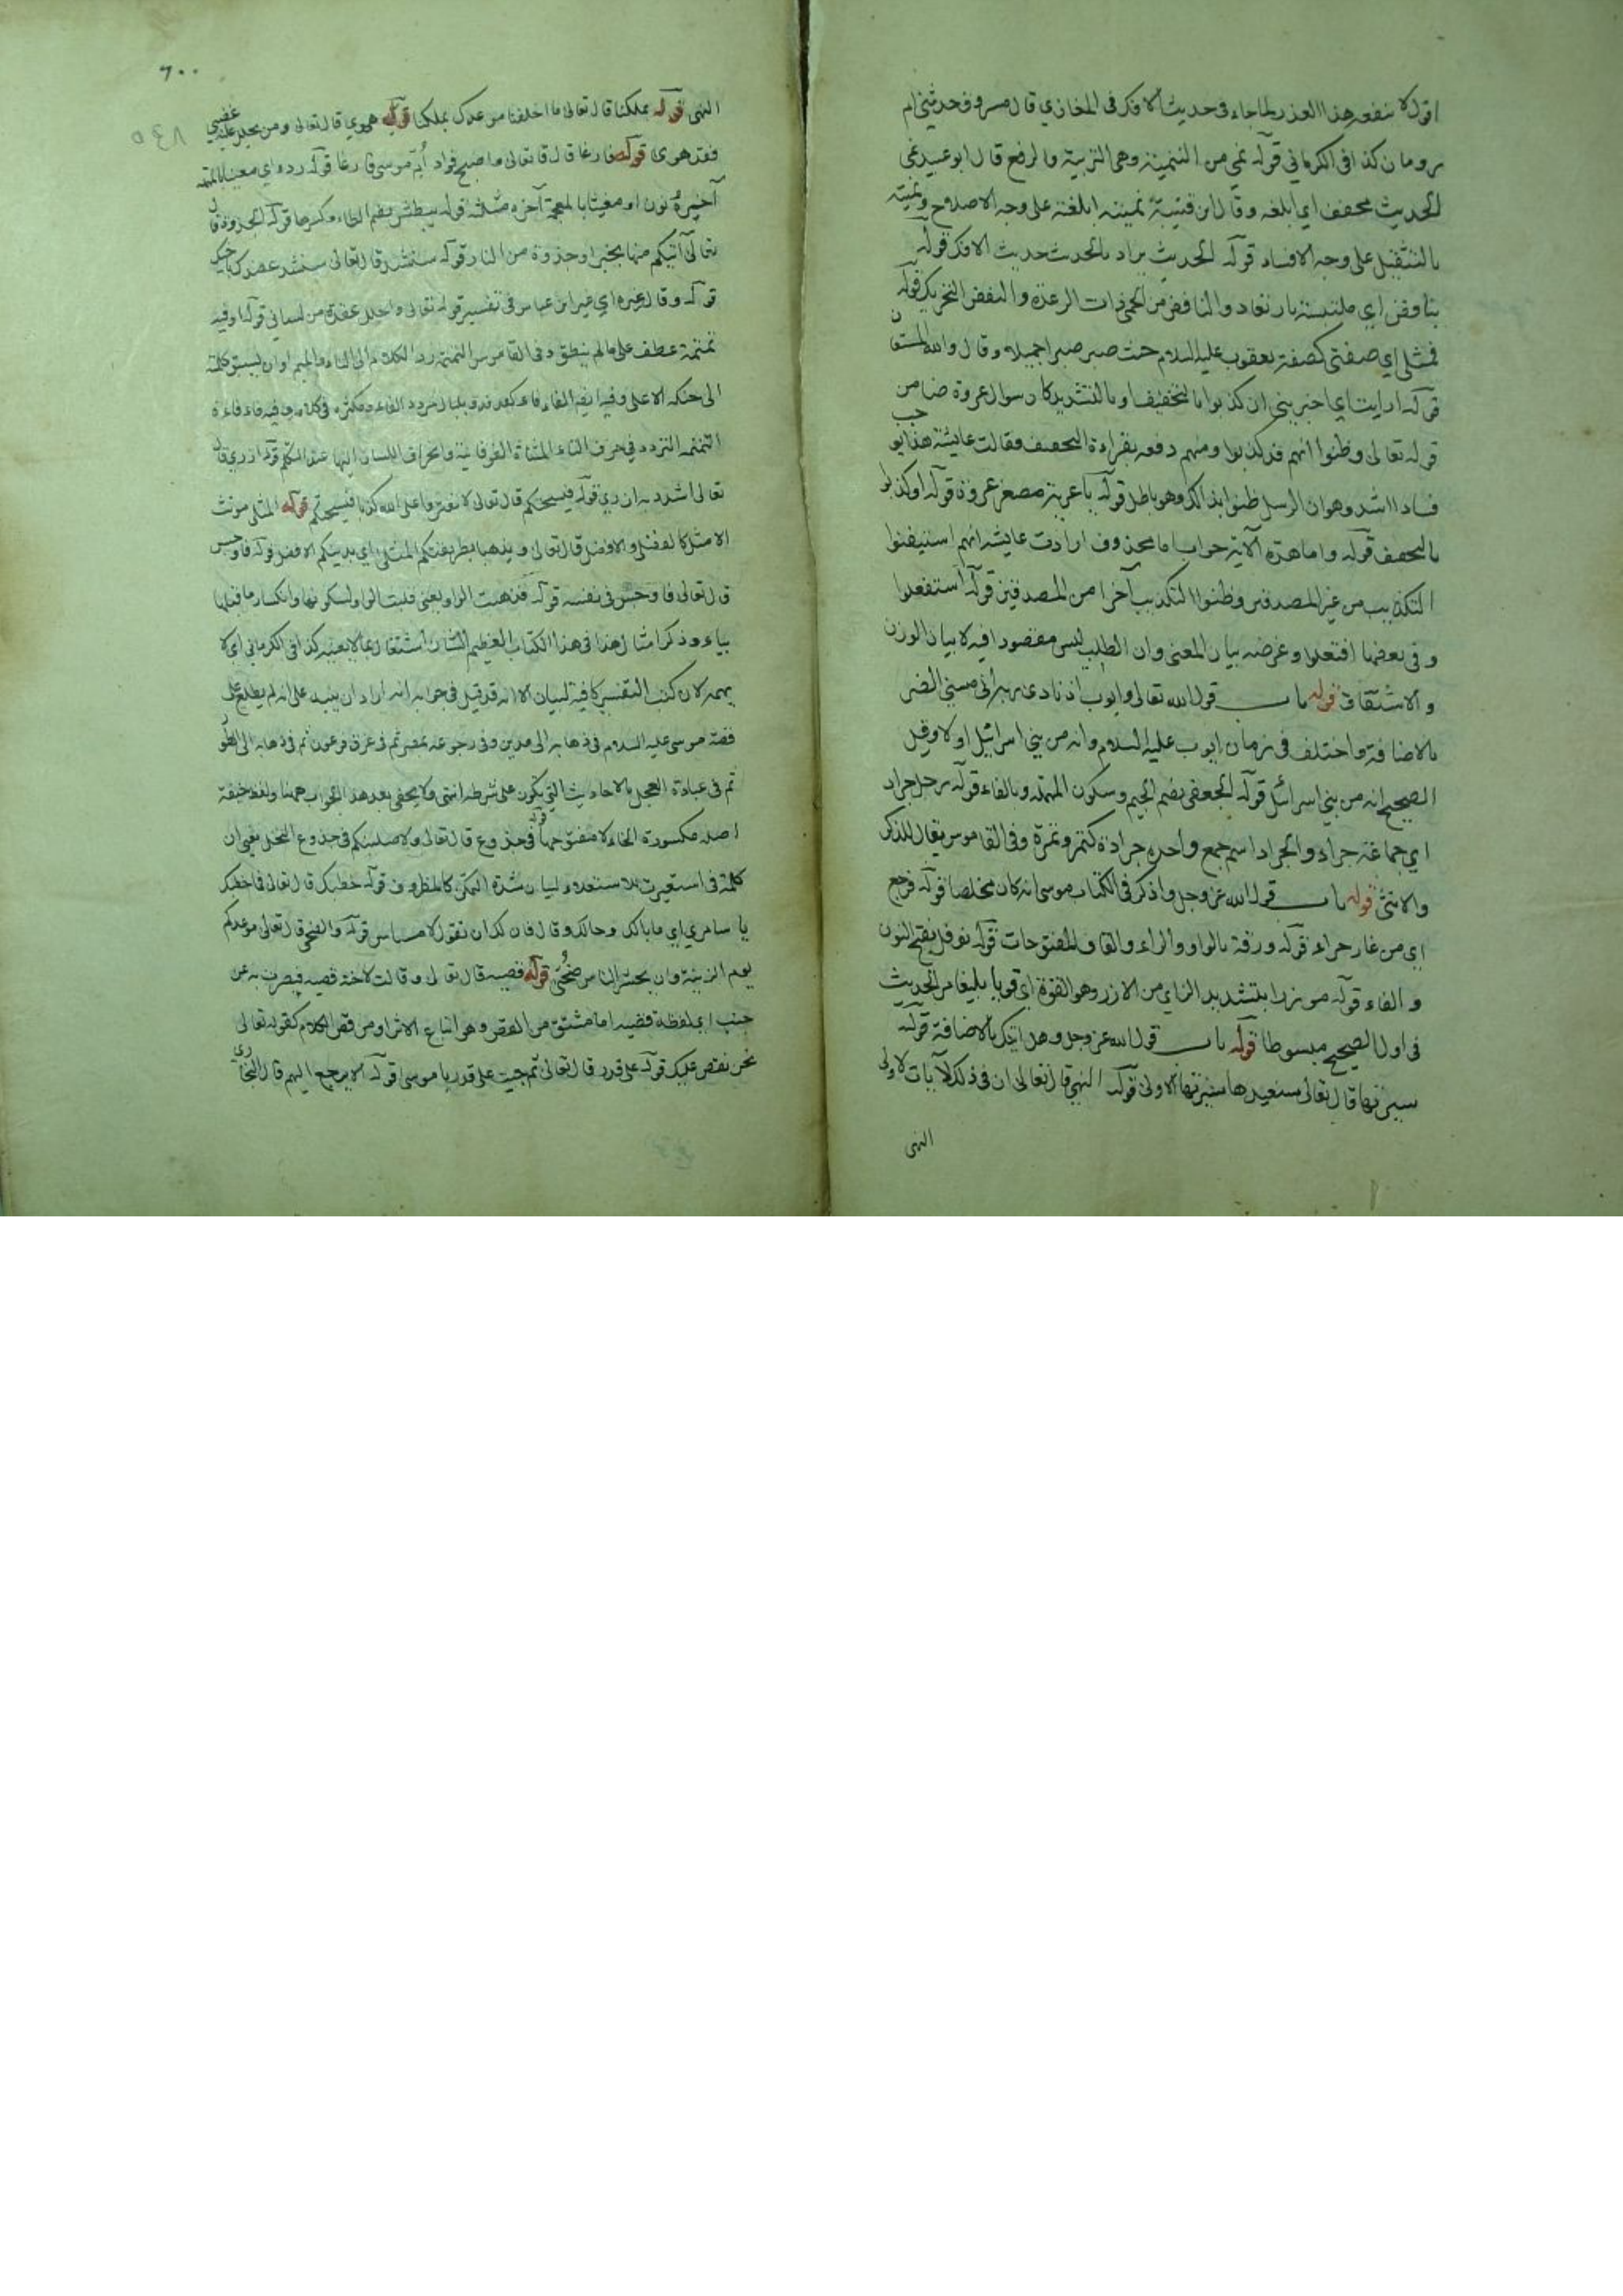 اقول لا ينفعه هذا العذر لما جاء في حديث الافك في المغازي قال مسروق حدثتني ام
رومان كذا في الكرماني قوله نمى من التنمية وهي التربية والرفع قال ابو عبيد نمى
الحديث مخفف اي ابلغه وقال ابن قتيبة نميته ابلغته على وجه الاصلاح ونميته
بالتثقيل على وجه الافساد قوله الحديث يراد بالحديث حديث الافك قوله
بنافض اي ملتبسة بارتعاد والنافض من الحمى ذات الرعدة والنفض التحريك قوله
فمثلي اي صفتي كصفة يعقوب عليه السلام حيث صبر صبرا جميلا وقال والله المستعان
قوله ارايت اي اخبريني ان كذبوا بالتخفيف او بالتشديد كان سوال عروة ضامن
قوله تعالى وظنوا انهم قد كذبوا ومنهم دفعه بقراءة التخفيف فقالت عايشة هذا يوجب
فسادا اشد وهو ان الرسل ظنوا بذالك وهو باطل قوله يا عرية مصغر عروة قوله او كذبوا
بالتخفيف قوله واما هذه الآية جواب اما محذوف ارادت عايشة انهم استيقنوا
التكذيب من غير المصدقين وظنوا التكذيب آخرا من المصدقين قوله استفعلوا
وفي بعضها افتعلوا وغرضه بيان المعنى وان الطلب ليس مقصودا فيه لا بيان الوزن
والاشتقاق قوله باب قول الله تعالى وايوب اذ نادى ربه اني مسني الضر
بالاضافة واختلف في زمان ايوب عليه السلام وانه من بني اسرائيل او لا وقيل
الصحيح انه من بني اسرائيل قوله الجعفي بضم الجيم وسكون المهملة وبالفاء قوله رجل جراد
اي جماعة جراد والجراد اسم جمع واحده جرادة كتمر وتمرة وفي القاموس يقال للذكر
والانثى قوله باب قول الله عز وجل واذكر في الكتاب موسى انه كان مخلصا قوله فرجع
اي من غار حراء قوله ورقة بالواو والراء والقاف المفتوحات قوله نوفل بفتح النون
والفاء قوله موزرا بتشديد الزاي من الازر وهو القوة اي قويا بليغا مر الحديث
في اول الصحيح مبسوطا قوله باب قول الله عز وجل وهل اتيك بالاضافة قوله
سيرتها قال تعالى سنعيدها سيرتها الاولى قوله النهي قال تعالى ان في ذلك لآيات لاولي
النهى
٦٠٠
النهى قوله بملكنا قال تعالى ما اخلفنا موعدك بملكنا قوله هوى قال تعالى ومن يحلل عليه غضبي
فقد هوى قوله فارغا قال تعالى واصبح فواد ام موسى فارغا قوله ردءا اي معينا بالمهملة
آخره نون او مغيثا بالمعجمة آخره مثلثة قوله يبطش بضم الطاء وكسرها قوله الجذوة قال
تعالى آتيكم منها بخبر او جذوة من النار قوله سنشد قال تعالى سنشد عضدك باخيك
قوله وقال غيره اي غير ابن عباس في تفسير قوله تعالى واحلل عقدة من لساني قوله او فيه
تمتمة عطف على ما لم ينطق وفي القاموس التمتمة رد الكلام الى التاء والميم او ان يسبق كلمته
الى حنكه الاعلى وفيه ايضا الفافاء كفدفد وبلبال مردد الفاء ومكثره في كلامه وفيه فافاة
التمتمة التردد في حرف التاء المثناة الفوقانية وانحراف اللسان اليها عند التكلم قوله ازري قال
تعالى اشدد به ازري قوله فيسحتكم قال تعالى لا تفتروا على الله كذبا فيسحتكم قوله المثلى مونث
الامثل كالفضلى والافضل قال تعالى ويذهبا بطريقتكم المثلى اي بدينكم الافضل قوله فاوجس
قال تعالى فاوجس في نفسه قوله فذهبت الواو يعني قلبت الواو لسكونها وانكسار ما قبلها
ياء وذكر امثال هذا في هذا الكتاب العظيم الشان اشتغال بما لا يعنيه كذا في الكرماني اي لا
يهمه لان كتب التفسير كافية لبيان الا انه قد قيل في جوابه انه اراد ان ينبه على انه لم يطلع على
قصة موسى عليه السلام في ذهابه الى مدين وفي رجوعه بمصر ثم في غرق فرعون ثم في ذهابه الى الطور
ثم في عبادة العجل بالاحاديث التي يكون على شرطه انتهى ولا يخفى بعد هذا الجواب ههنا ولفظ خيفة
اصله مكسورة الخاء لا مفتوحها قوله في جذوع قال تعالى ولاصلبنكم في جذوع النخل يعني ان
كلمة في استعيرت للاستعلاء لبيان شدة التمكن كالمظروف قوله خطبك قال تعالى فما خطبك
يا سامري اي ما بالك وحالك وقال فان لك ان تقول لا مساس قوله والضحى قال تعالى موعدكم
يوم الزينة وان يحشر الناس ضحى قوله قصيه قال تعالى وقالت لاخته قصيه فبصرت به عن
جنب اي لفظة قصيه اما مشتق من القص وهو اتباع الاثر او من قص الكلام كقوله تعالى
نحن نقص عليك قوله على قدر قال تعالى ثم جيت على قدر يا موسى قوله الا يرجع اليهم قال البخاري